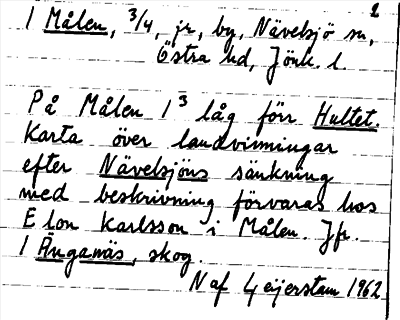 1
1 Målen, 3/4, jr, by, Nävelsjö sn,
Östra hd, Jönk. l.
På Målen 1³ låg förr Hultet.
Karta över landvinningar
efter Nävelsjöns sänkning
med beskrivning förvaras hos
Elon Karlsson i Målen. Jfr.
1 Änganäs, skog.
N af Geijerstam 1962